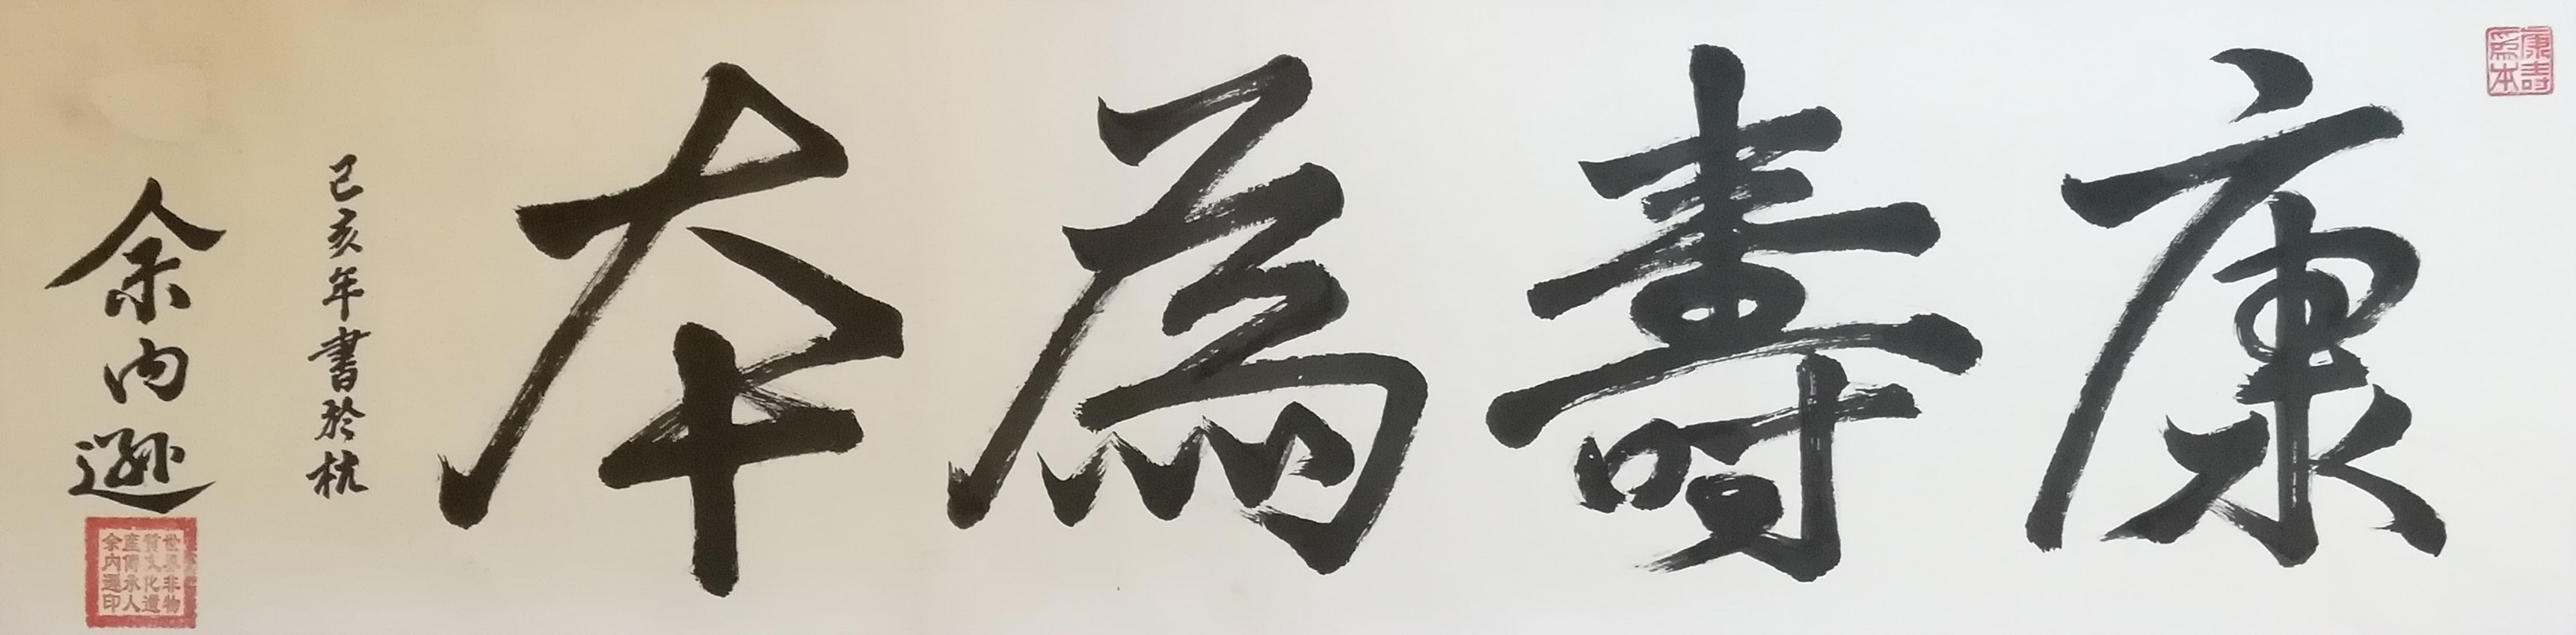 康壽
為本
康壽為本
己亥年書於杭
余内遜
世界非物
質文化遺
產傳承人
余内遜印